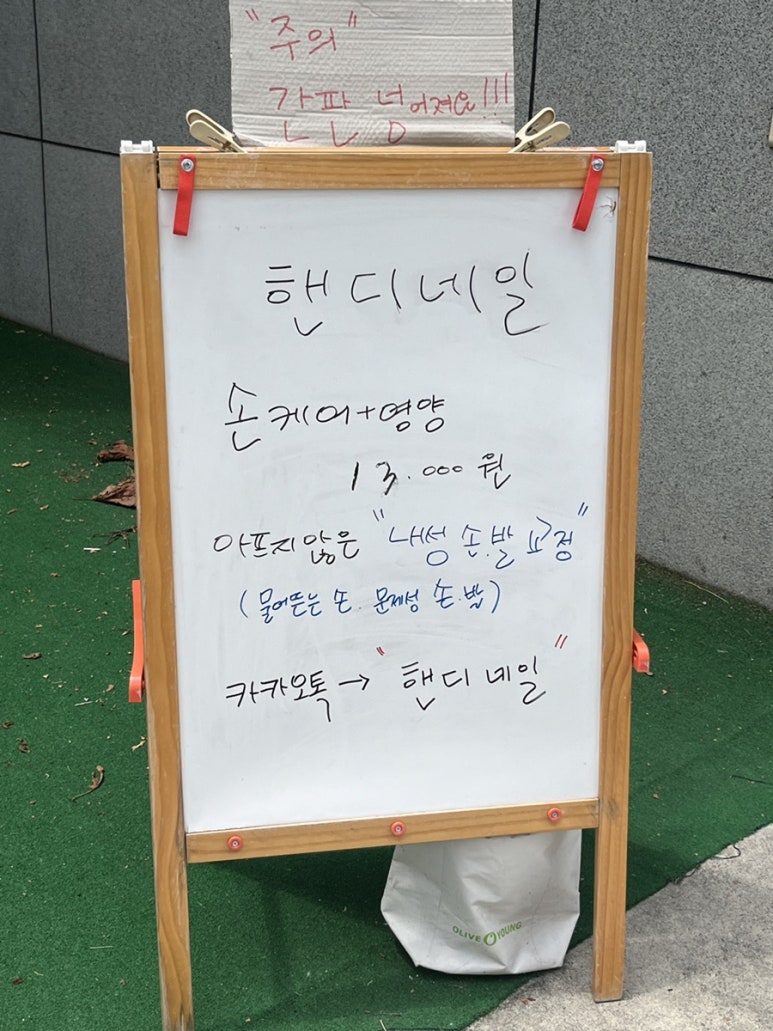 "주의"
간판 넘어져요!!!
핸디네일
손케어+영양
13.000원
아프지않은 "내성 손.발 교정"
(물어뜯는 손. 문제성 손.발)
카카오톡→"핸디네일"
OLIVE YOUNG